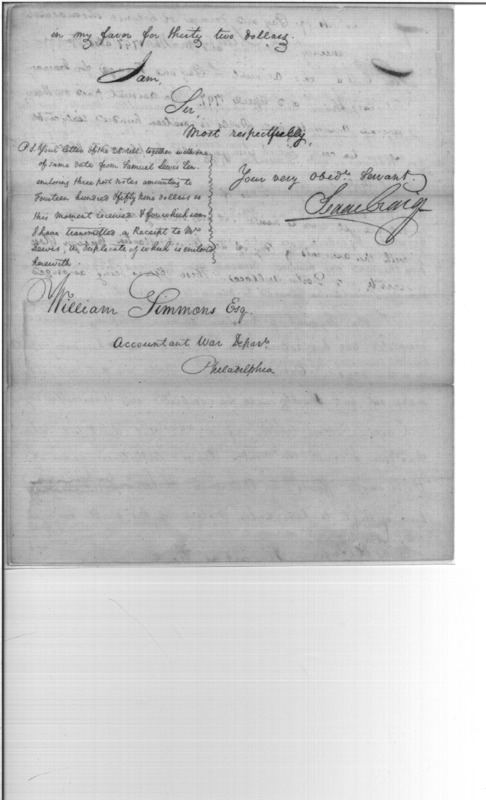 in my favor for thirty two dollars.
I am,
Sir
Most respectfully,
Your very obedt. Servant
Isaac Craig
P.S. Your letter of the 28 Ult. together with one
of same date from Samuel Lewis Sen.
enclosing three post notes amounting to
Fourteen hundred & fifty nine dollars is
this moment received & for which sum
I have transmitted a Receipt to Mr
Lewis, a duplicate of which is enclosed
herewith
William Simmons Esq.
Accountant War Depart.
Philadelphia